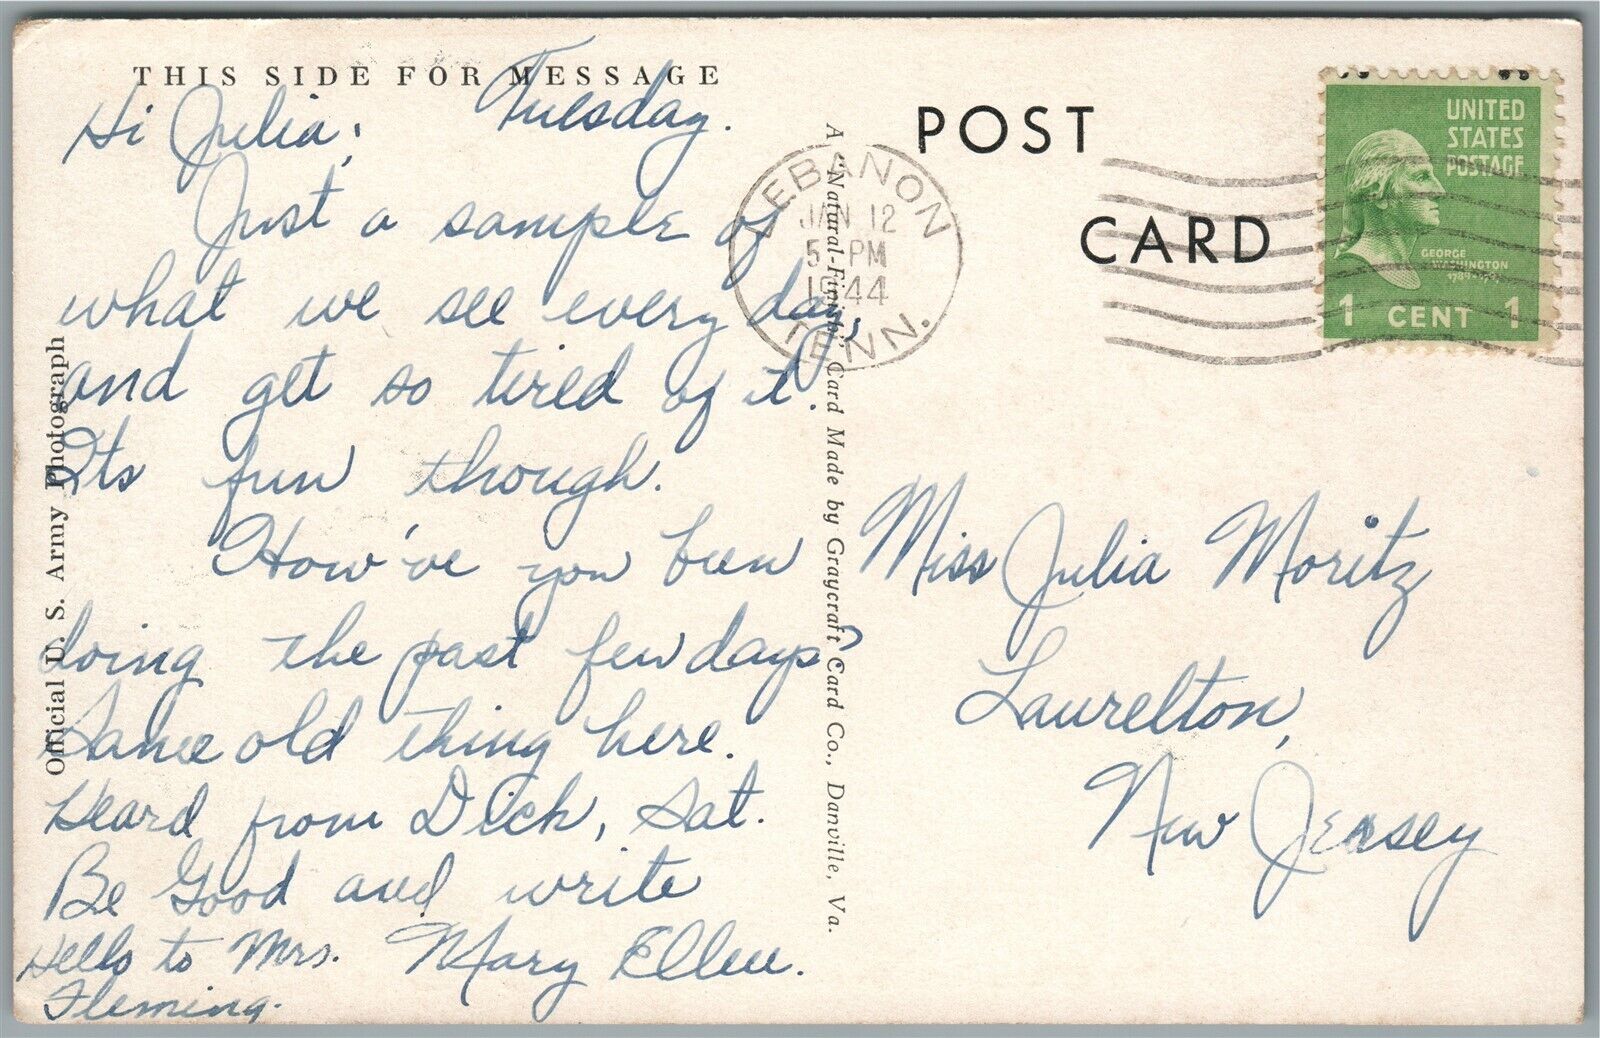 THIS SIDE FOR MESSAGE
Tuesday.
Hi Julia,
Just a sample of
what we see every day,
and get so tired of it.
Its fun though.
How've you been
doing the past few days?
Same old thing here.
Heard from Dick, Sat.
Be Good and write
Hello to Mrs. Mary Ellen.
Fleming.
Official U. S. Army Photograph
A "Natural-Finish" Card Made by Graycraft Card Co., Danville, Va.
POST
CARD
LEBANON
JAN 12
5 PM
1944
TENN.
UNITED
STATES
POSTAGE
GEORGE
WASHINGTON
1 CENT 1
Miss Julia Moritz
Laurelton,
New Jersey